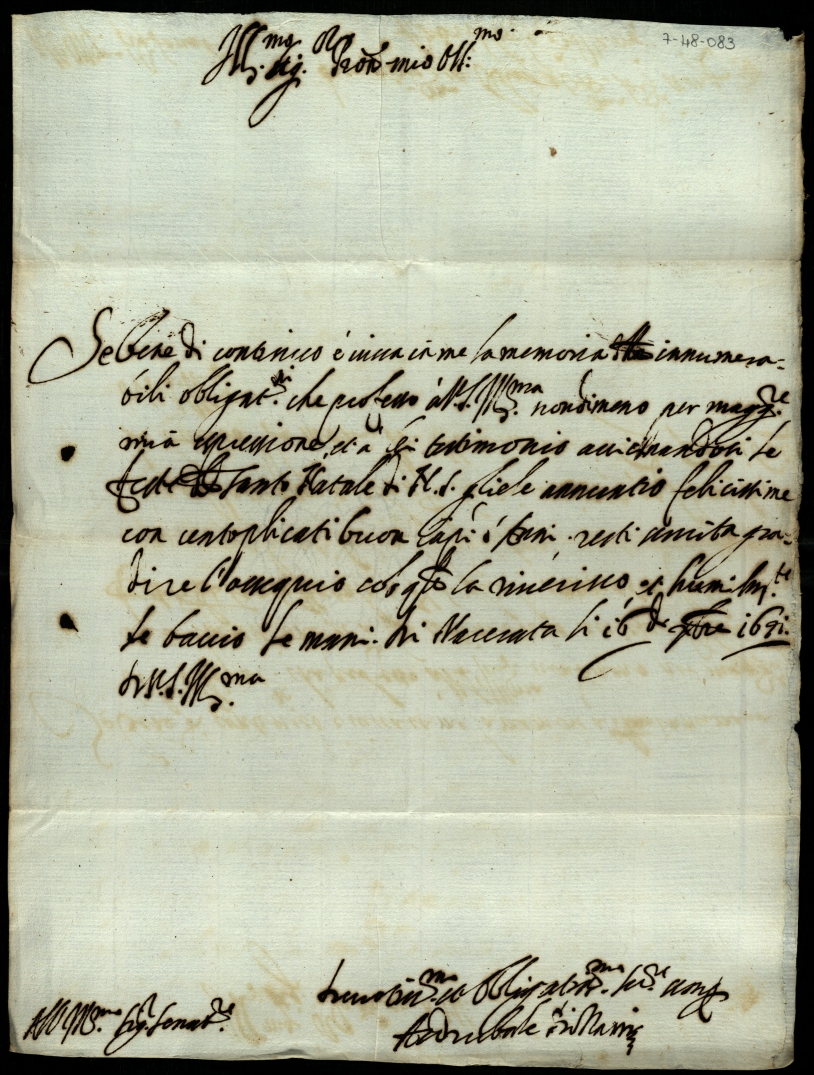 7-48-083
Ill.mo Sig.r Pron mio Oss.mo
Se bene di continuo è viva in me la memoria delle innumera-
bili obligat.ni che professo à V.S. Ill.ma nondimeno per magg.re
mia espressione, et à testimonio avicinandosi le
feste del Santo Natale di N. S. gliele annuntio felicissime
con centoplicati buon capi d'anni. resti servita gra-
dire l'ossequio col q.le la riverisco, et humilm.te
le baccio le mani. Di Macerata li 16 d 1691.
Di V.S. Ill.ma
Devotiss.mo et Obligatiss.mo Ser.e
Asdrubale
All Ill.mo Sig.r Senat.re